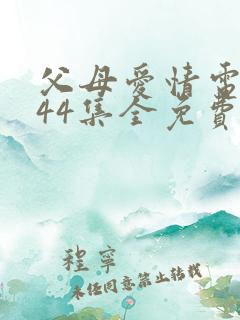 父母愛情電
44集全免費
程寧
未经同意禁止转载